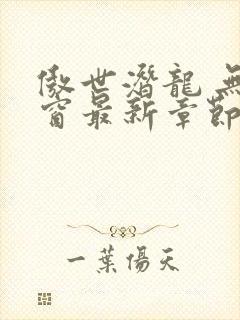 傲世潛龍 無
窗最新章節
一葉傷天